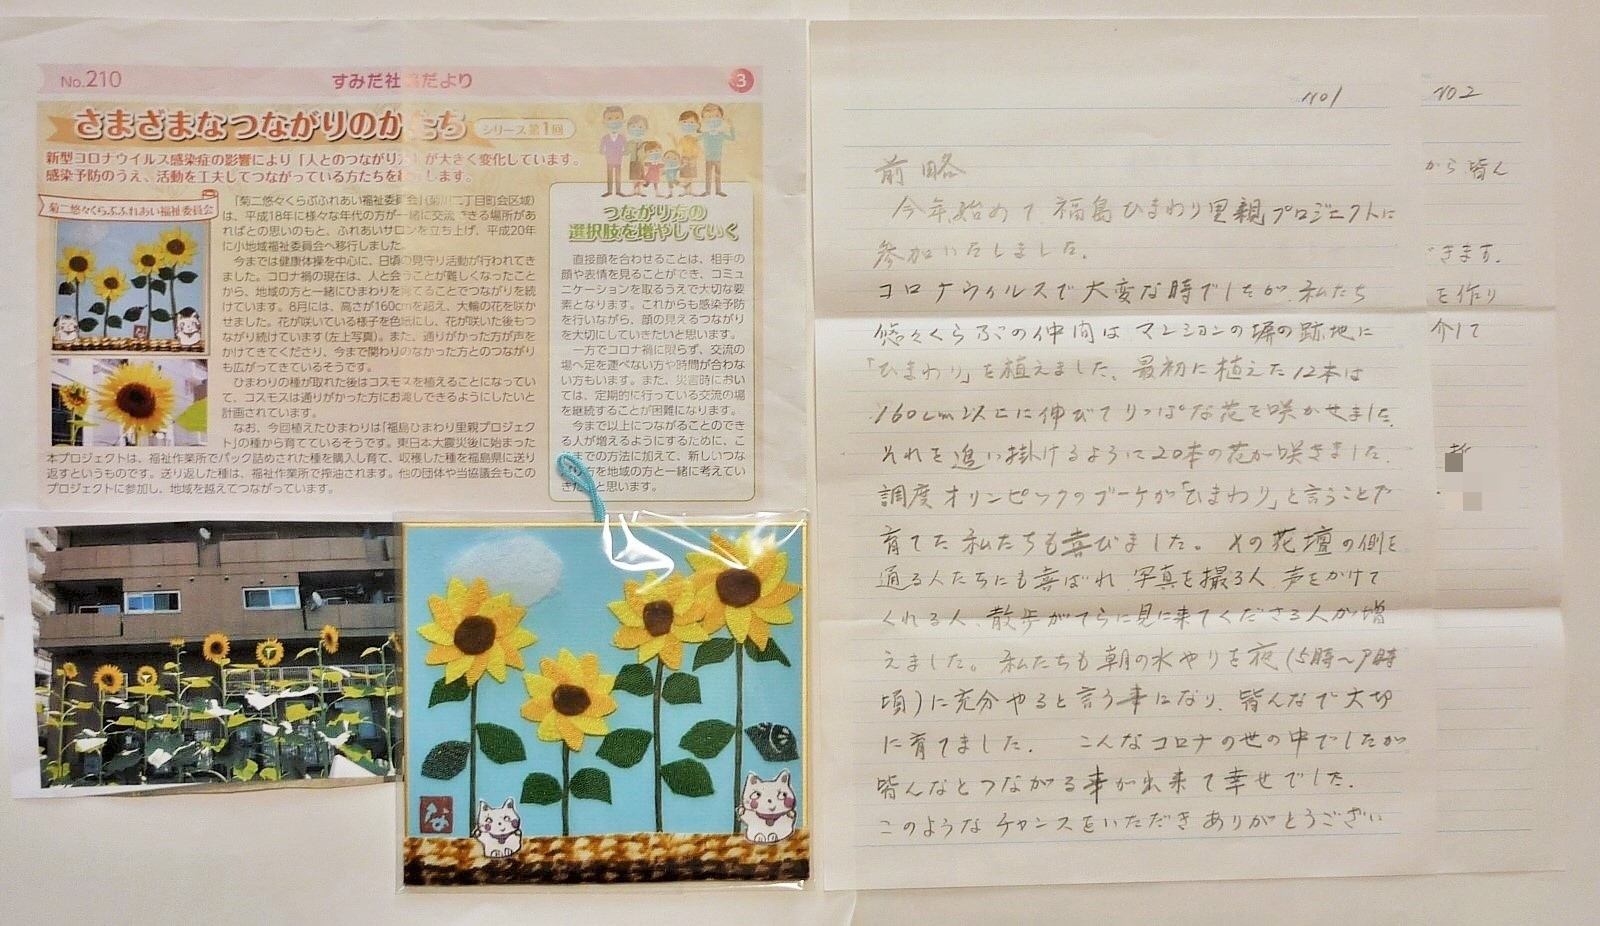 No.210
すみだ社
だより
3
さまざまなつながりのかたち
シリーズ第1回
新型コロナウイルス感染症の影響により「人とのつながり方」が大きく変化しています。
感染予防のうえ、活動を工夫してつながっている方たちを紹介します。
菊二悠々くらぶふれあい福祉委員会
「菊二悠々くらぶふれあい福祉委員会」(菊川二丁目町会区域)
は、平成18年に様々な年代の方が一緒に交流できる場所があ
ればとの思いのもと、ふれあいサロンを立ち上げ、平成20年
に小地域福祉委員会へ移行しました。
今までは健康体操を中心に、日頃の見守り活動が行われてき
ました。コロナ禍の現在は、人と会うことが難しくなったこと
から、地域の方と一緒にひまわりを育てることでつながりを続
けています。8月には、高さが160cmを超え、大輪の花を咲か
せました。花が咲いている様子を色紙にし、花が咲いた後もつ
ながり続けています(左上写真)。また、通りがかった方が声を
かけてきてくださり、今まで関わりのなかった方とのつながり
も広がってきているそうです。
ひまわりの種が取れた後はコスモスを植えることになってい
て、コスモスは通りがかった方にお渡しできるようにしたいと
計画されています。
なお、今回植えたひまわりは「福島ひまわり里親プロジェク
ト」の種から育てているそうです。東日本大震災後に始まった
本プロジェクトは、福祉作業所でパック詰めされた種を購入し育て、収穫した種を福島県に送り
返すというものです。送り返した種は、福祉作業所で搾油されます。他の団体や当協議会もこの
プロジェクトに参加し、地域を越えてつながっています。
つながり方の
選択肢を増やしていく
直接顔を合わせることは、相手の
顔や表情を見ることができ、コミュ
ニケーションを取るうえで大切な要
素となります。これからも感染予防
を行いながら、顔の見えるつながり
を大切にしていきたいと思います。
一方でコロナ禍に限らず、交流の
場へ足を運べない方や時間が合わな
い方もいます。また、災害時におい
ては、定期的に行っている交流の場
を継続することが困難になります。
今まで以上につながることのでき
る人が増えるようにするために、こ
れまでの方法に加えて、新しいつな
がり方を地域の方と一緒に考えてい
きたいと思います。
な
no1
前略
今年始めて福島ひまわり里親プロジェクトに
参加いたしました。
コロナウィルスで大変な時でしたが、私たち
悠々くらぶの仲間はマンションの塀の跡地に
「ひまわり」を植えました。最初に植えた12本は
160cm以上に伸びてりっぱな花を咲かせました。
それを追い掛けるように20本の花が咲きました。
調度オリンピックのブーケが「ひまわり」と言うことで
育てた私たちも喜びました。その花壇の側を
通る人たちにも喜ばれ、写真を撮る人、声をかけて
くれる人、散歩がてらに見に来てくださる人が増
えました。私たちも朝の水やりを夜(5時〜7時
頃)に充分やると言う事になり、皆んなで大切
に育てました。 こんなコロナの世の中でしたが
皆んなとつながる事が出来て幸せでした。
このようなチャンスをいただきありがとうござい
no2
から皆ん
きます。
を作り
介して